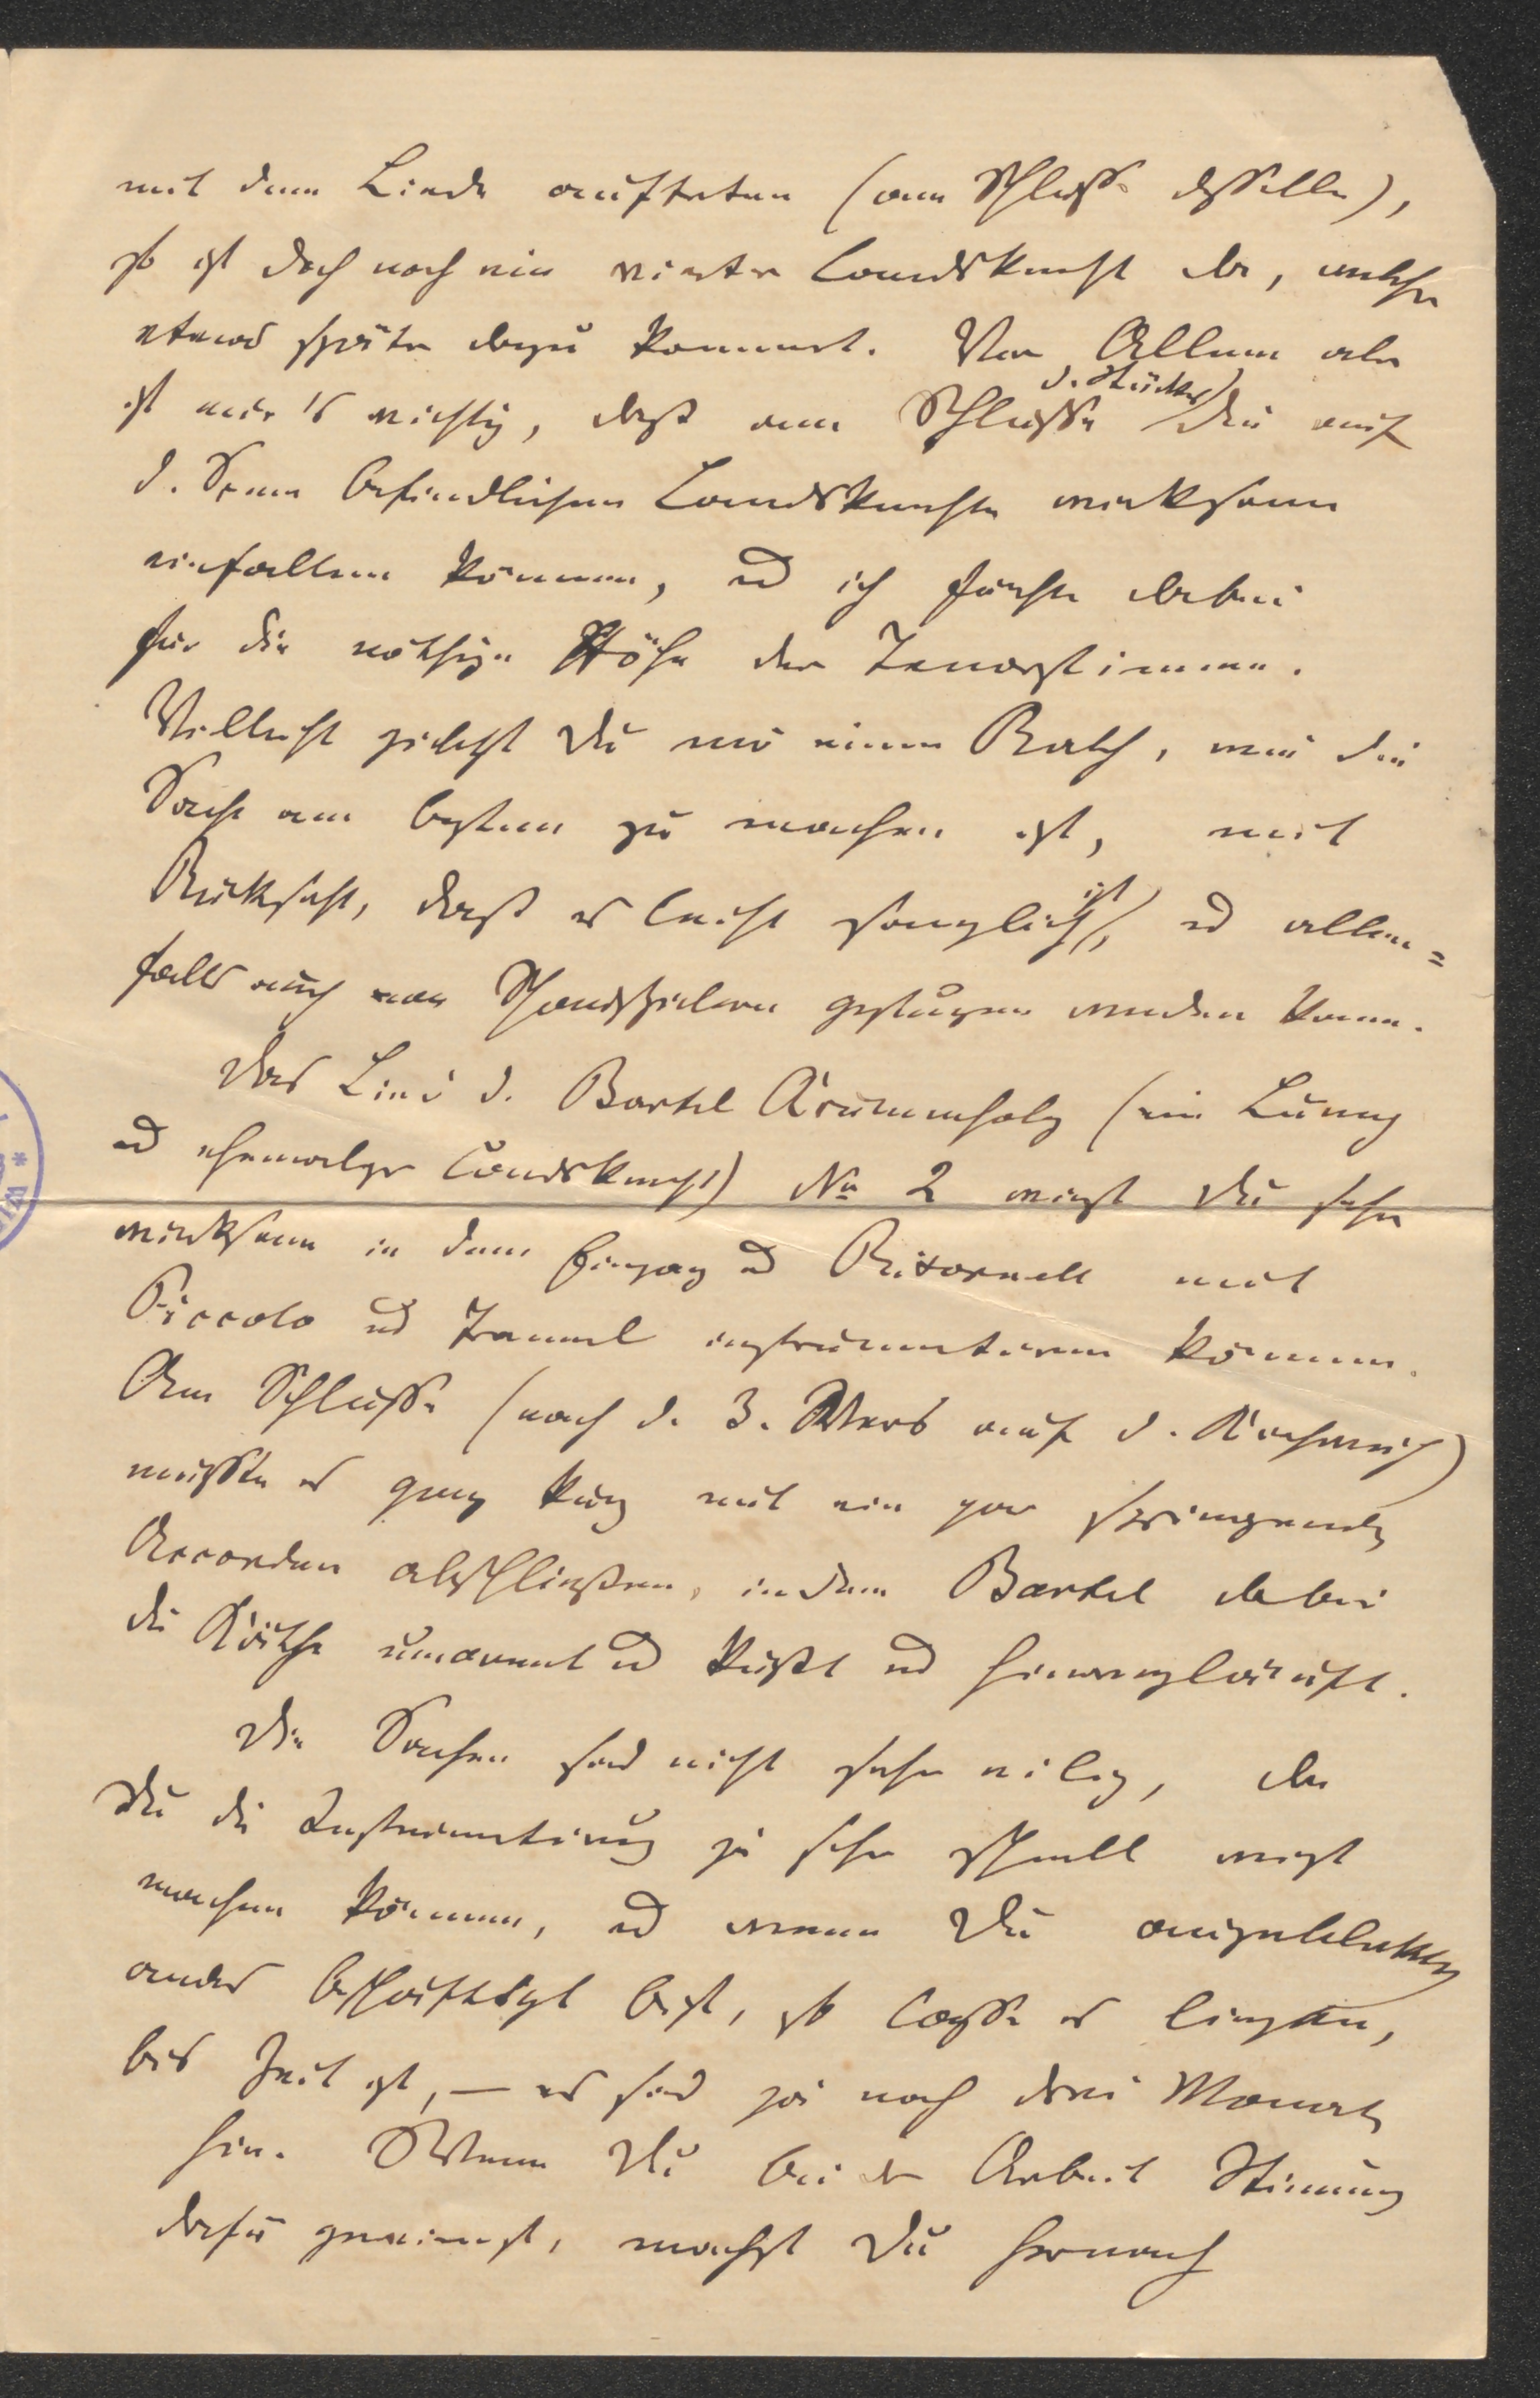 mit dem Liede auftreten (am Schlusse desselben),
so ist doch noch ein vierter Landsknecht da, welcher
etwas später dazu kommt. Vor Allem aber
ist mir's wichtig, daß am Schlusse d. Stückes die auf
d. Scene befindlichen Landsknechte wirksam
einfallen können, und ich fürchte dabei
für die nöthige Höhe der Tenorstimmen.
Vielleicht giebst Du mir einen Rath, wie die
Sache am besten zu machen ist, mit
Rücksicht, daß es leicht sanglich ist, und allen=
falls auch von Schauspielern gesungen werden kann.
Das Lied d. Bartel Krummholz (ein Lump
und ehemaliger Landsknecht) No 2 wirst Du sehr
wirksam in dem Eingang und Ritornell mit
Piccolo und Trommel instrumentiren können.
Am Schlusse (nach d. 3. Vers auf d. Kirchweih)
müsste es ganz kurz mit ein paar springenden
Accorden abschließen, indem Bartel dabei
die Käthe umarmt und küßt und hinwegläuft.
Die Sachen sind nicht sehr eilig, da
Du die Instrumentirung ja sehr schnell wirst
machen können, und wenn Du augenblicklich
anders beschäftigt bist, so lasse es liegen,
bis Zeit ist, – es sind ja noch drei Monate
hin. Wenn Du bei der Arbeit Stimmung
dafür gewinnst, machst Du hernach